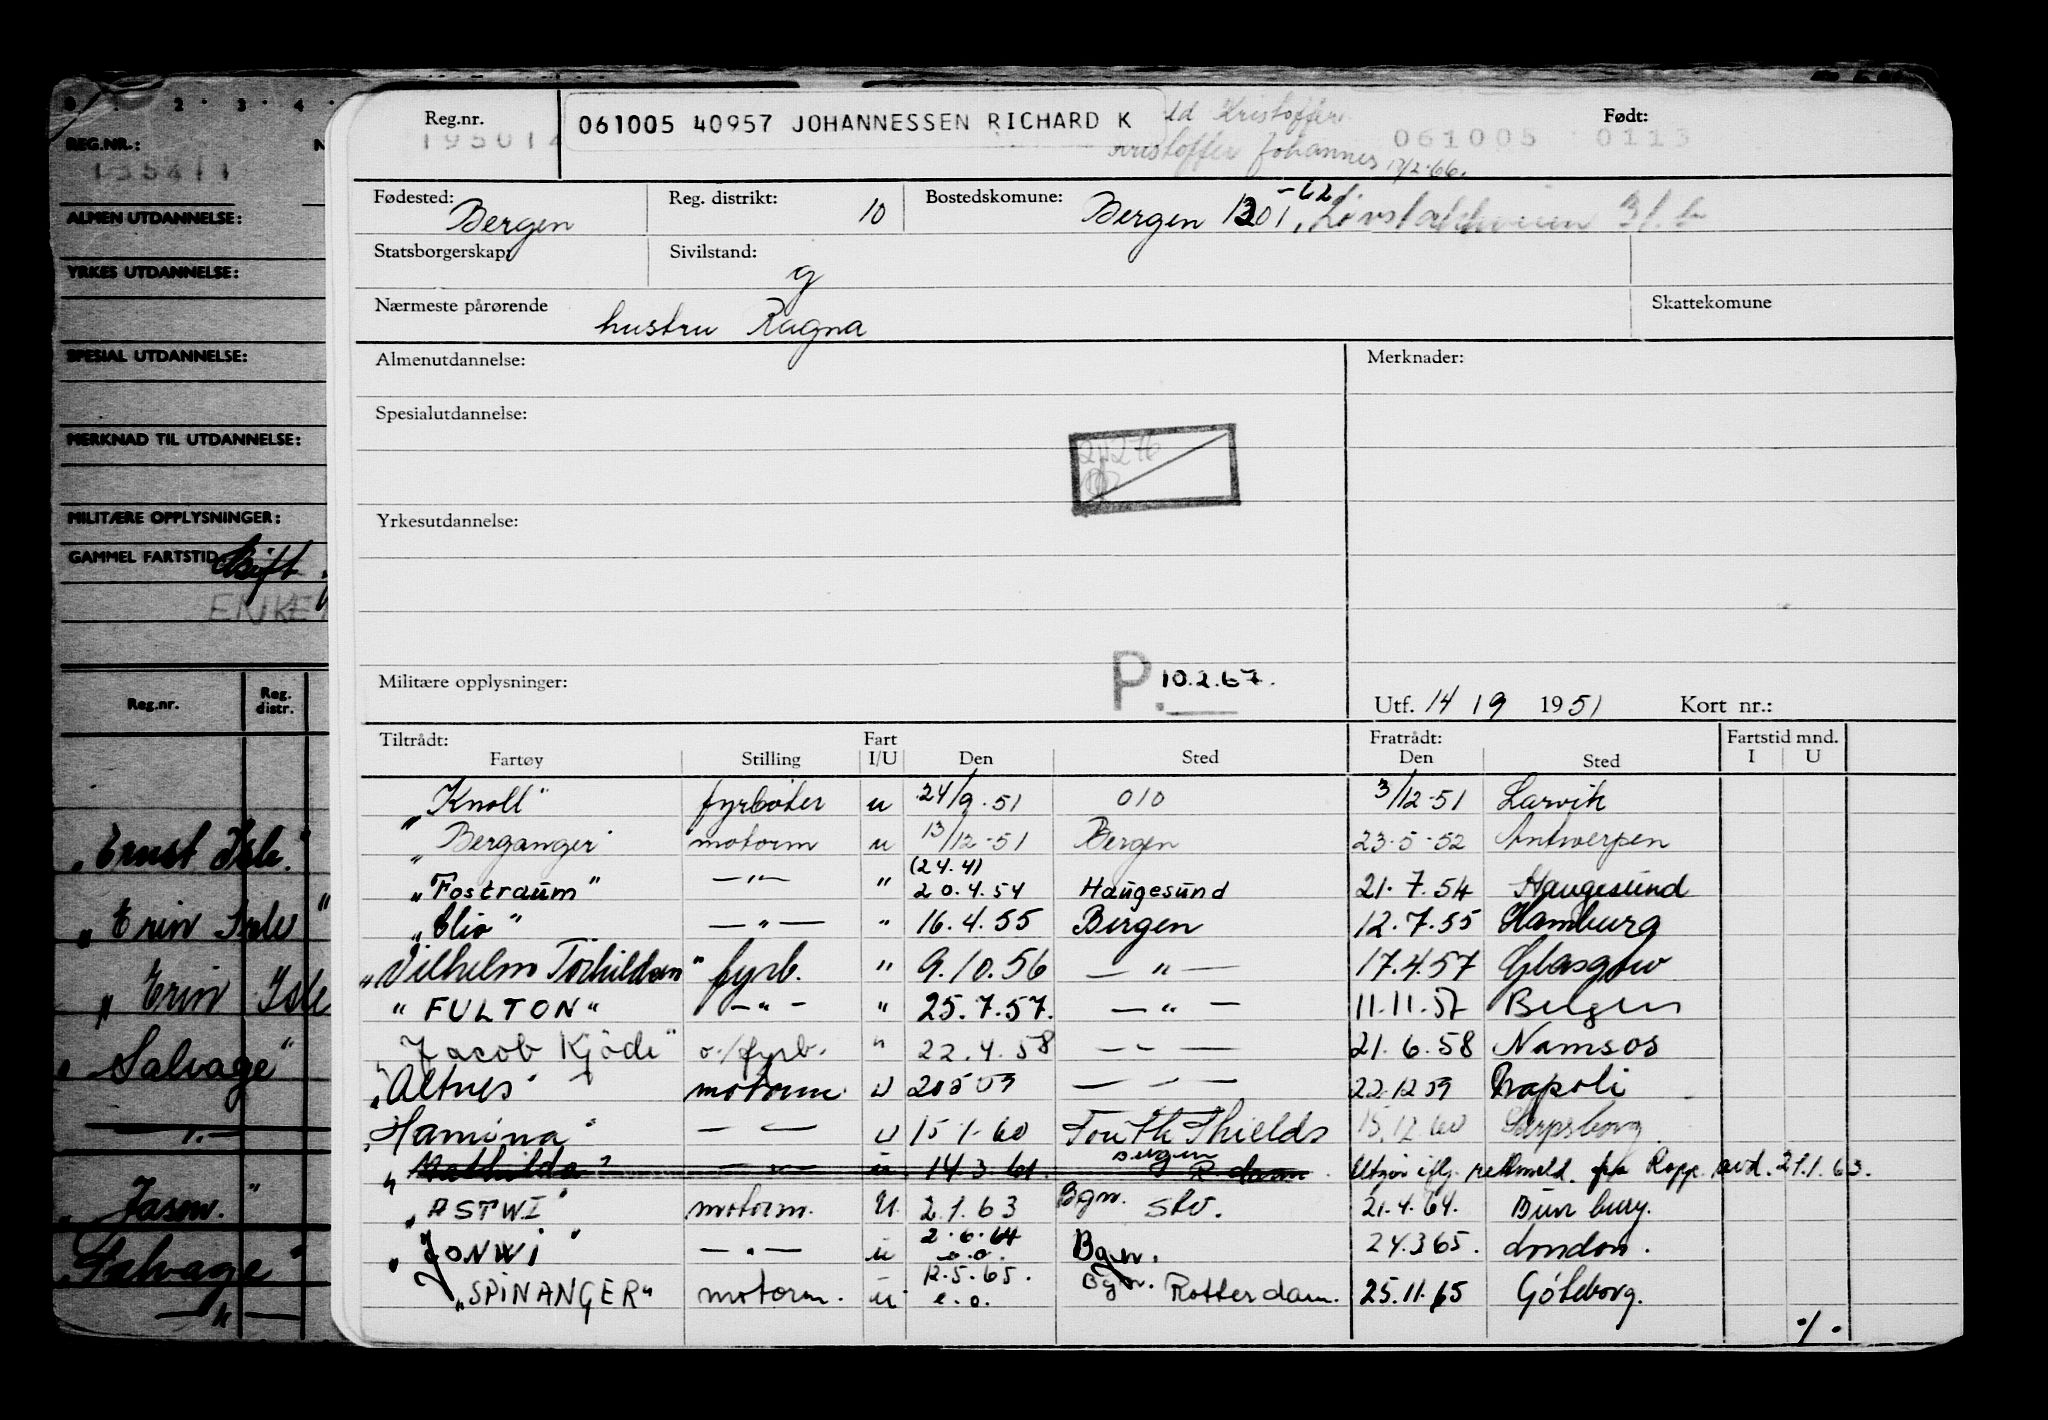 REG.NR.:
135411
ALMEN UTDANNELSE:
YRKES UTDANNELSE:
SPESIAL UTDANNELSE:
MERKNAD TIL UTDANNELSE:
MILITÆRE OPPLYSNINGER:
GAMMEL FARTSTID
Gift
ENKE
Reg.nr. Reg. distr.
„Ernst Isle."
„Erin Isle"
„Erin Isle
Salvage"
Jason."
Salvage"
— " —
Reg.nr. 061005 40957 JOHANNESSEN RICHARD K Kristoffer Født:
Kristoffer Johannes 17/2-66. 061005 0113
Fødested: Bergen Reg. distrikt: 10 Bostedskomune: Bergen 1301 -62
Statsborgerskap: Sivilstand: g
Nærmeste pårørende hustru Ragna Skattekomune
Almenutdannelse: Merknader:
Spesialutdannelse:
Yrkesutdannelse:
Militære opplysninger: P. 10.2.67. Utf. 14 / 9 1951 Kort nr.:
Tiltrådt: Fart Fratrådt: Fartstid mnd.
Fartøy Stilling I/U Den Sted Den Sted I U
„Knoll" fyrbøter u 24/9.51 Olo 3/12-51 Larvik
„Berganger motorm u 13/12-51 Bergen 23-5-52 Antwerpen
„Fostraum" — " — " (24.4) 20.4.54 Haugesund 21.7.54 Haugesund
„Clio" — " — " 16.4.55 Bergen 12.7.55 Hamburg
„Vilhelm Torkildsen" fyrb. " 9.10.56 — " — 17.4.57 Glasgow
" FULTON " — " — " 25.7.57. — " — 11.11.57 Belgen
„Jacob Kjöde" o./fyrb. " 22.4.58 — " — 21.6.58 Namsos
„Altnes" motorm. u 20559 — " — 22.1259 Napoli
„Hamina" — " — u 15.1.60 South Shields 15.12.60 Sarpsborg
„Mathilda" — " — u 14.3.61. Bergen R.dam Utgår iflg. Rapp. avd. 21.1.63.
„ASTWI" motorm. U. 2.1.63 Bgn. Stv. 21.4.64. Bunbury.
„JONWI" — " — u 2.6.64 e.o. Bgn. 24.365. London.
„SPINANGER" motorm. u 12.5.65. e.o. Bgn. Rotterdam. 25.11.65 Göteborg.
./.